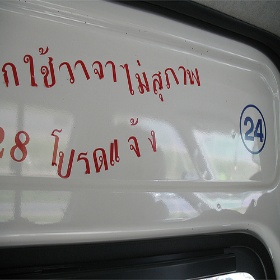 กใช้วาจาไม่สุภาพ
28 โปรดแจ้ง
24